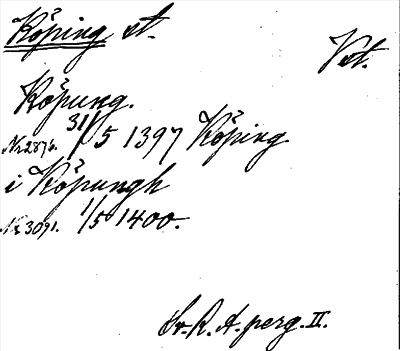 Köping st.
Vst.
Köpung.
Nr 2876. 31/5 1397 Köping
i Köpungh
Nr 3091. 1/5 1400.
Sv. R. A. perg. II.